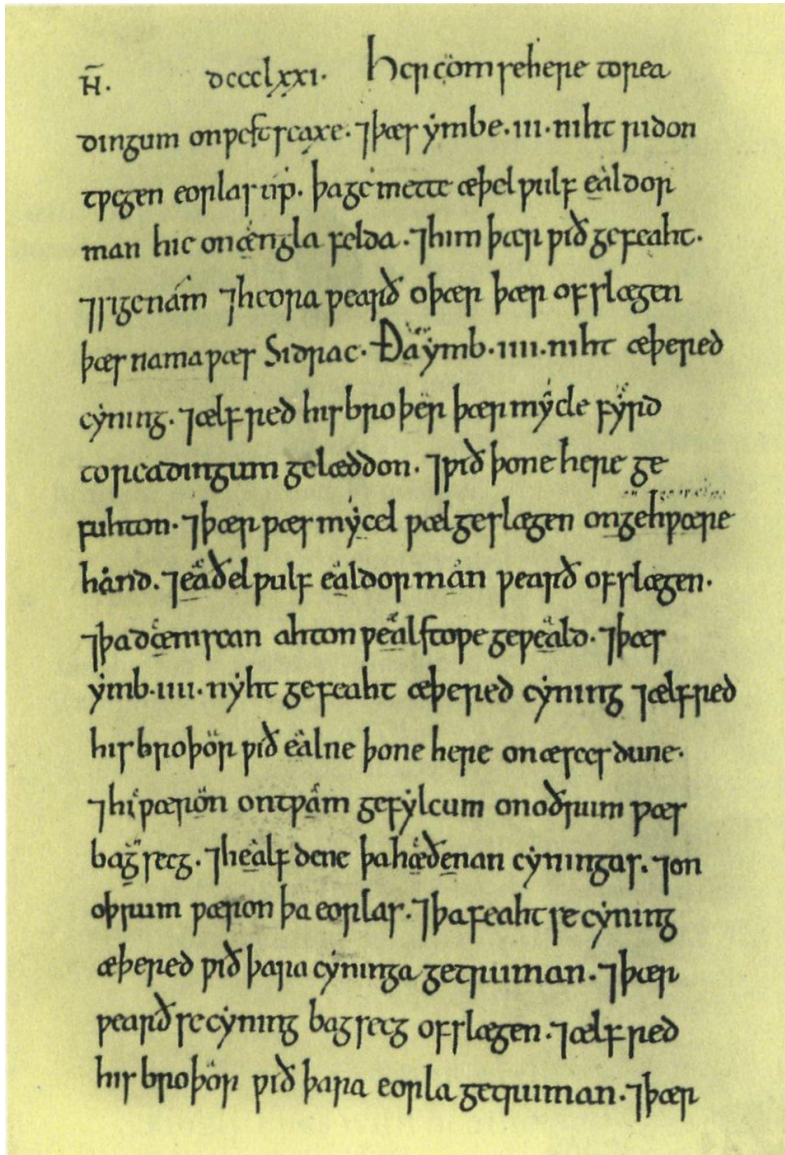 H̄. DCCCLXXI. Her cöm se here to rea
dingum on ƿestseaxe. ⁊ þæs ẏmbe .III. niht ridon
tƿegen eorlas úp. þa gemette æþelƿulf ealdor
man hie on ængla felda. ⁊ him þær ƿið gefeaht.
⁊ sige nám ⁊ heora ƿearð oþær þær ofslægen
þæs nama ƿæs Sidrac. Ða ẏmb .IIII. niht æþered
cẏning. ⁊ ælfred his broþër þær mẏcle fẏrd
to readingum gelæddon. ⁊ ƿið þone here ge
fuhton. ⁊ þær ƿæs mẏcel ƿælgeslægen on gehƿære
hánd. ⁊ eaðelƿulf ealdorman ƿearð ofslægen.
⁊ þa dæniscan ahton ƿealstoƿe geƿeald. ⁊ þæs
ẏmb .IIII. nẏht gefeaht æþered cẏning ⁊ ælfred
his broþör ƿið ealne þone here on æscesdune.
⁊ hi ƿærön on tƿám gefẏlcum on oðrum ƿæs
bagsecg. ⁊ healfdene þa hæðenan cẏningas. ⁊ on
oþrum ƿæron þa eorlas. ⁊ þa feaht se cẏning
æþered ƿið þara cẏninga getruman. ⁊ þær
ƿearð se cẏning bagsecg ofslægen. ⁊ ælfred
his broþör ƿið þara eorla getruman. ⁊ þær